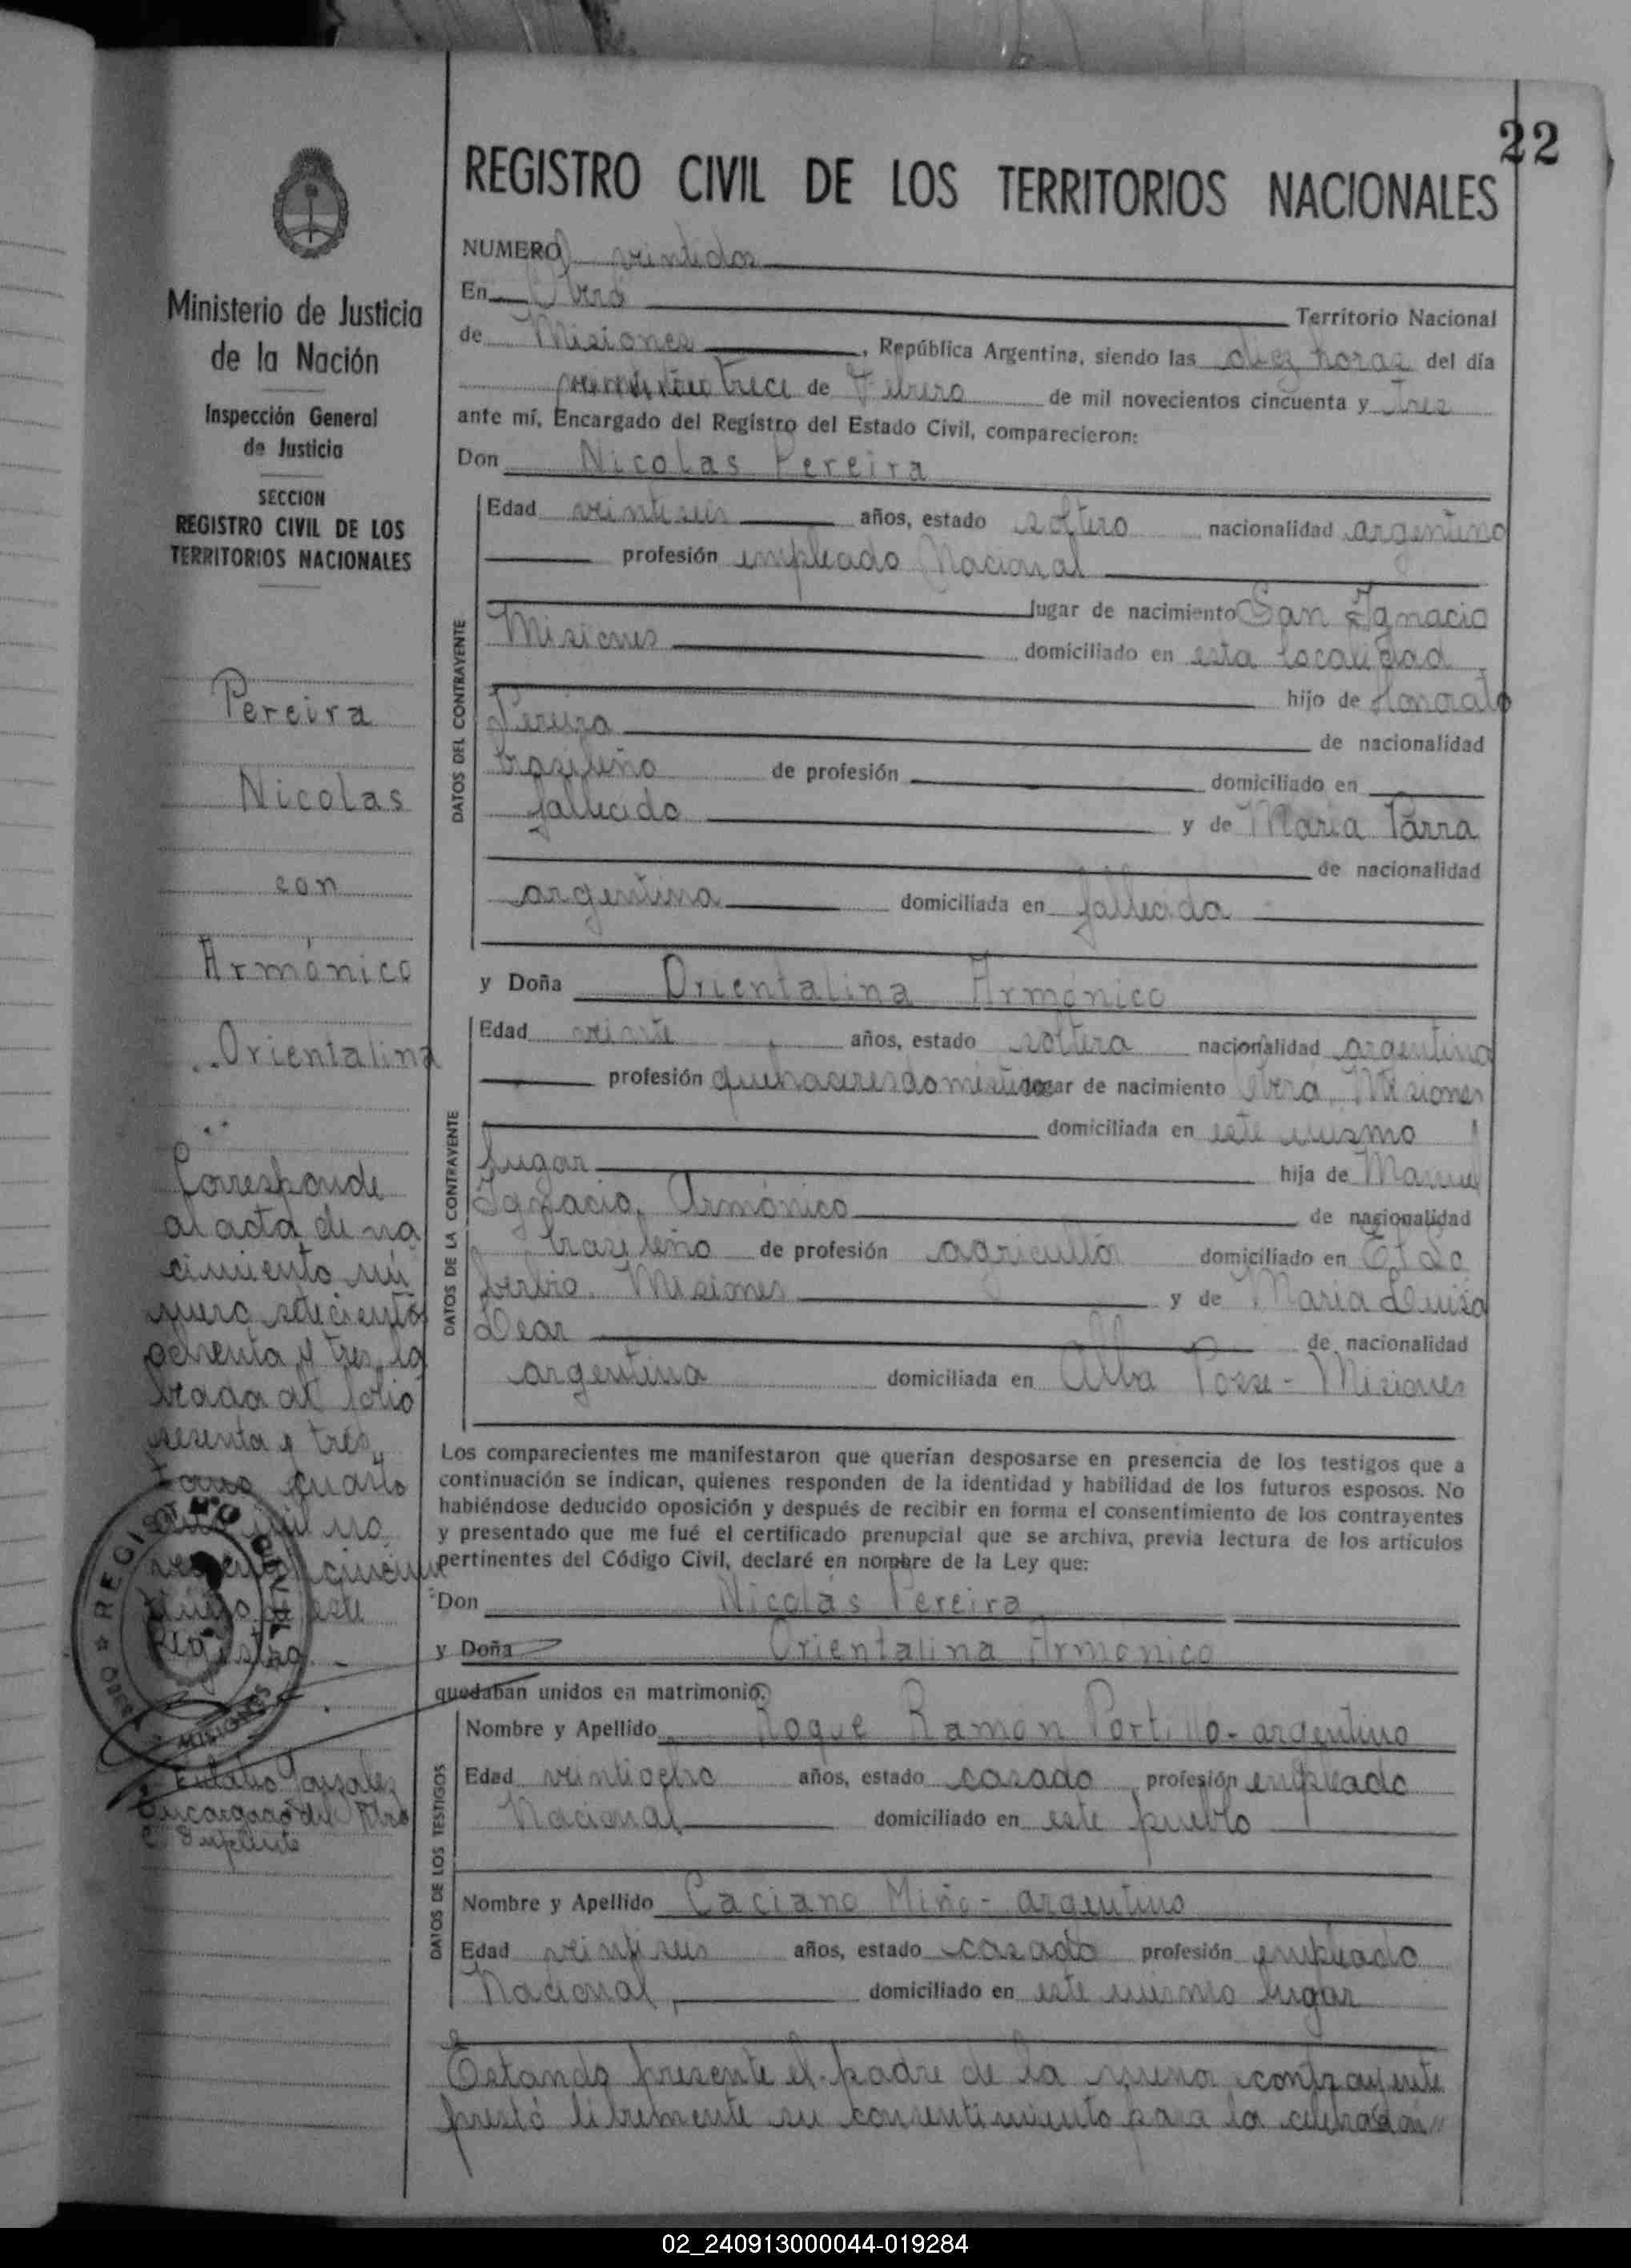 22
REGISTRO CIVIL DE LOS TERRITORIOS NACIONALES
Ministerio de Justicia
de la Nación
Inspección General
de Justicia
SECCION
REGISTRO CIVIL DE LOS
TERRITORIOS NACIONALES
Pereira
Nicolas
con
Armónico
Orientalina
Corresponde
al acta de na
cimiento nú
mero setecientos
ochenta y tres, la
brada al folio
sesenta y tres,
tomo cuarto
mil no
este
Registro.
REGISTRO CIVIL
MISIONES
Eulalio Gonzalez
Encargado del
Suplente
NUMERO veintidos
En Oberá Territorio Nacional
de Misiones, República Argentina, siendo las diez horas del día
trece de Febrero de mil novecientos cincuenta y Tres
ante mí, Encargado del Registro del Estado Civil, comparecieron:
Don Nicolas Pereira
DATOS DEL CONTRAYENTE
Edad veintiseis años, estado soltero nacionalidad argentino
profesión empleado Nacional
lugar de nacimiento San Ignacio
Misiones domiciliado en esta localidad
hijo de Honorato
Pereira de nacionalidad
brasileño de profesión domiciliado en
fallecido y de Maria Parra
de nacionalidad
argentina domiciliada en fallecida
y Doña Orientalina Armónico
DATOS DE LA CONTRAYENTE
Edad veinte años, estado soltera nacionalidad argentina
profesión quehaceres domésticos lugar de nacimiento Oberá, Misiones
domiciliada en este mismo
lugar hija de Manuel
Ignacio Armónico de nacionalidad
brasileño de profesión agricultor domiciliado en El So
berbio. Misiones y de Maria Luisa
Dear de nacionalidad
argentina domiciliada en Alba Posse - Misiones
Los comparecientes me manifestaron que querían desposarse en presencia de los testigos que a
continuación se indican, quienes responden de la identidad y habilidad de los futuros esposos. No
habiéndose deducido oposición y después de recibir en forma el consentimiento de los contrayentes
y presentado que me fué el certificado prenupcial que se archiva, previa lectura de los artículos
pertinentes del Código Civil, declaré en nombre de la Ley que:
Don Nicolás Pereira
y Doña Orientalina Armonico
quedaban unidos en matrimonio.
DATOS DE LOS TESTIGOS
Nombre y Apellido Roque Ramon Portillo - argentino
Edad veintiocho años, estado casado profesión empleado
Nacional domiciliado en este pueblo
Nombre y Apellido Caciano Miño - argentino
Edad veintiseis años, estado casado profesión empleado
Nacional, domiciliado en este mismo lugar
Estando presente el padre de la contrayente
prestó libremente su consentimiento para la celebración
02_240913000044-019284